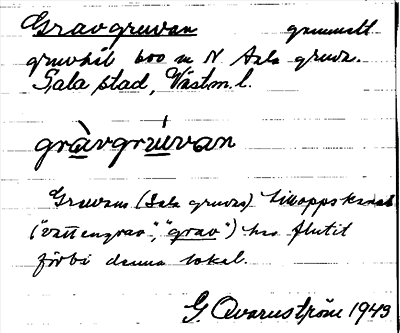 Gravgruvan gammalt
gruvhål 600 m N Sala gruva.
Sala stad, Västm. l.
gràvgrúvan
Gruvans (Sala gruvas) tilloppskanal
("vattengrav", "grav") har flutit
förbi denna lokal.
G. Qvarnström 1943